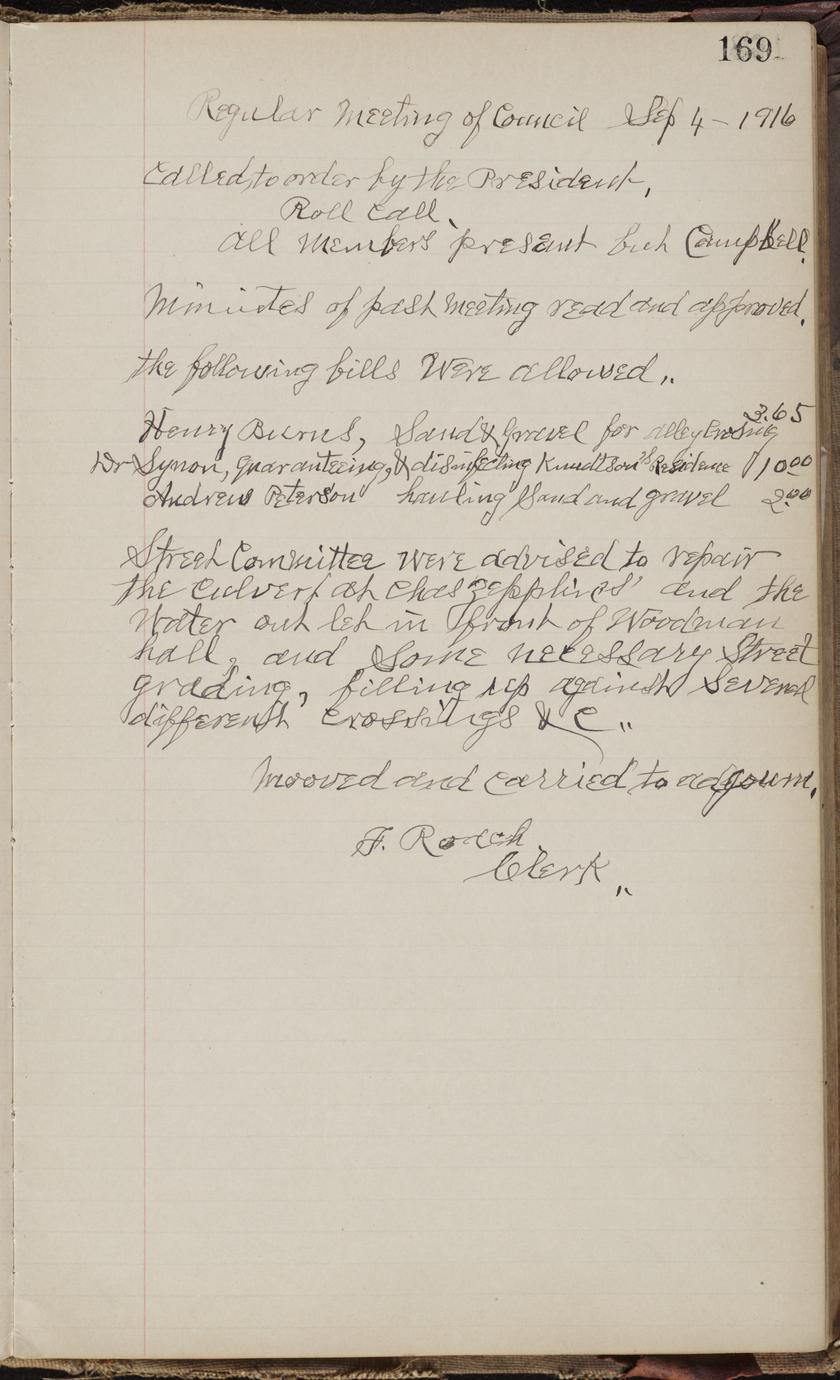 169
Regular Meeting of Council Sep 4 - 1916
Called to order by the President,
Roll Call,
All Members present but Campbell.
Minutes of past Meeting read and approved.
the following bills Were allowed,,
3.65
Henry Burns, Sand & Gravel for alley Crosing
Dr Synon, quaranteeing, & disinfecting Knudtson's Residence 10.00
Andrew Peterson hauling Sand and gravel 2.00
Street Committee were advised to repair
the Culvert at Chas and the
Water out let in front of Woodman
hall, and Some necessary Street
grading, filling up against Several
different Crossings & C,,
Mooved and Carried to adjourn.
F. Roach
Clerk,,